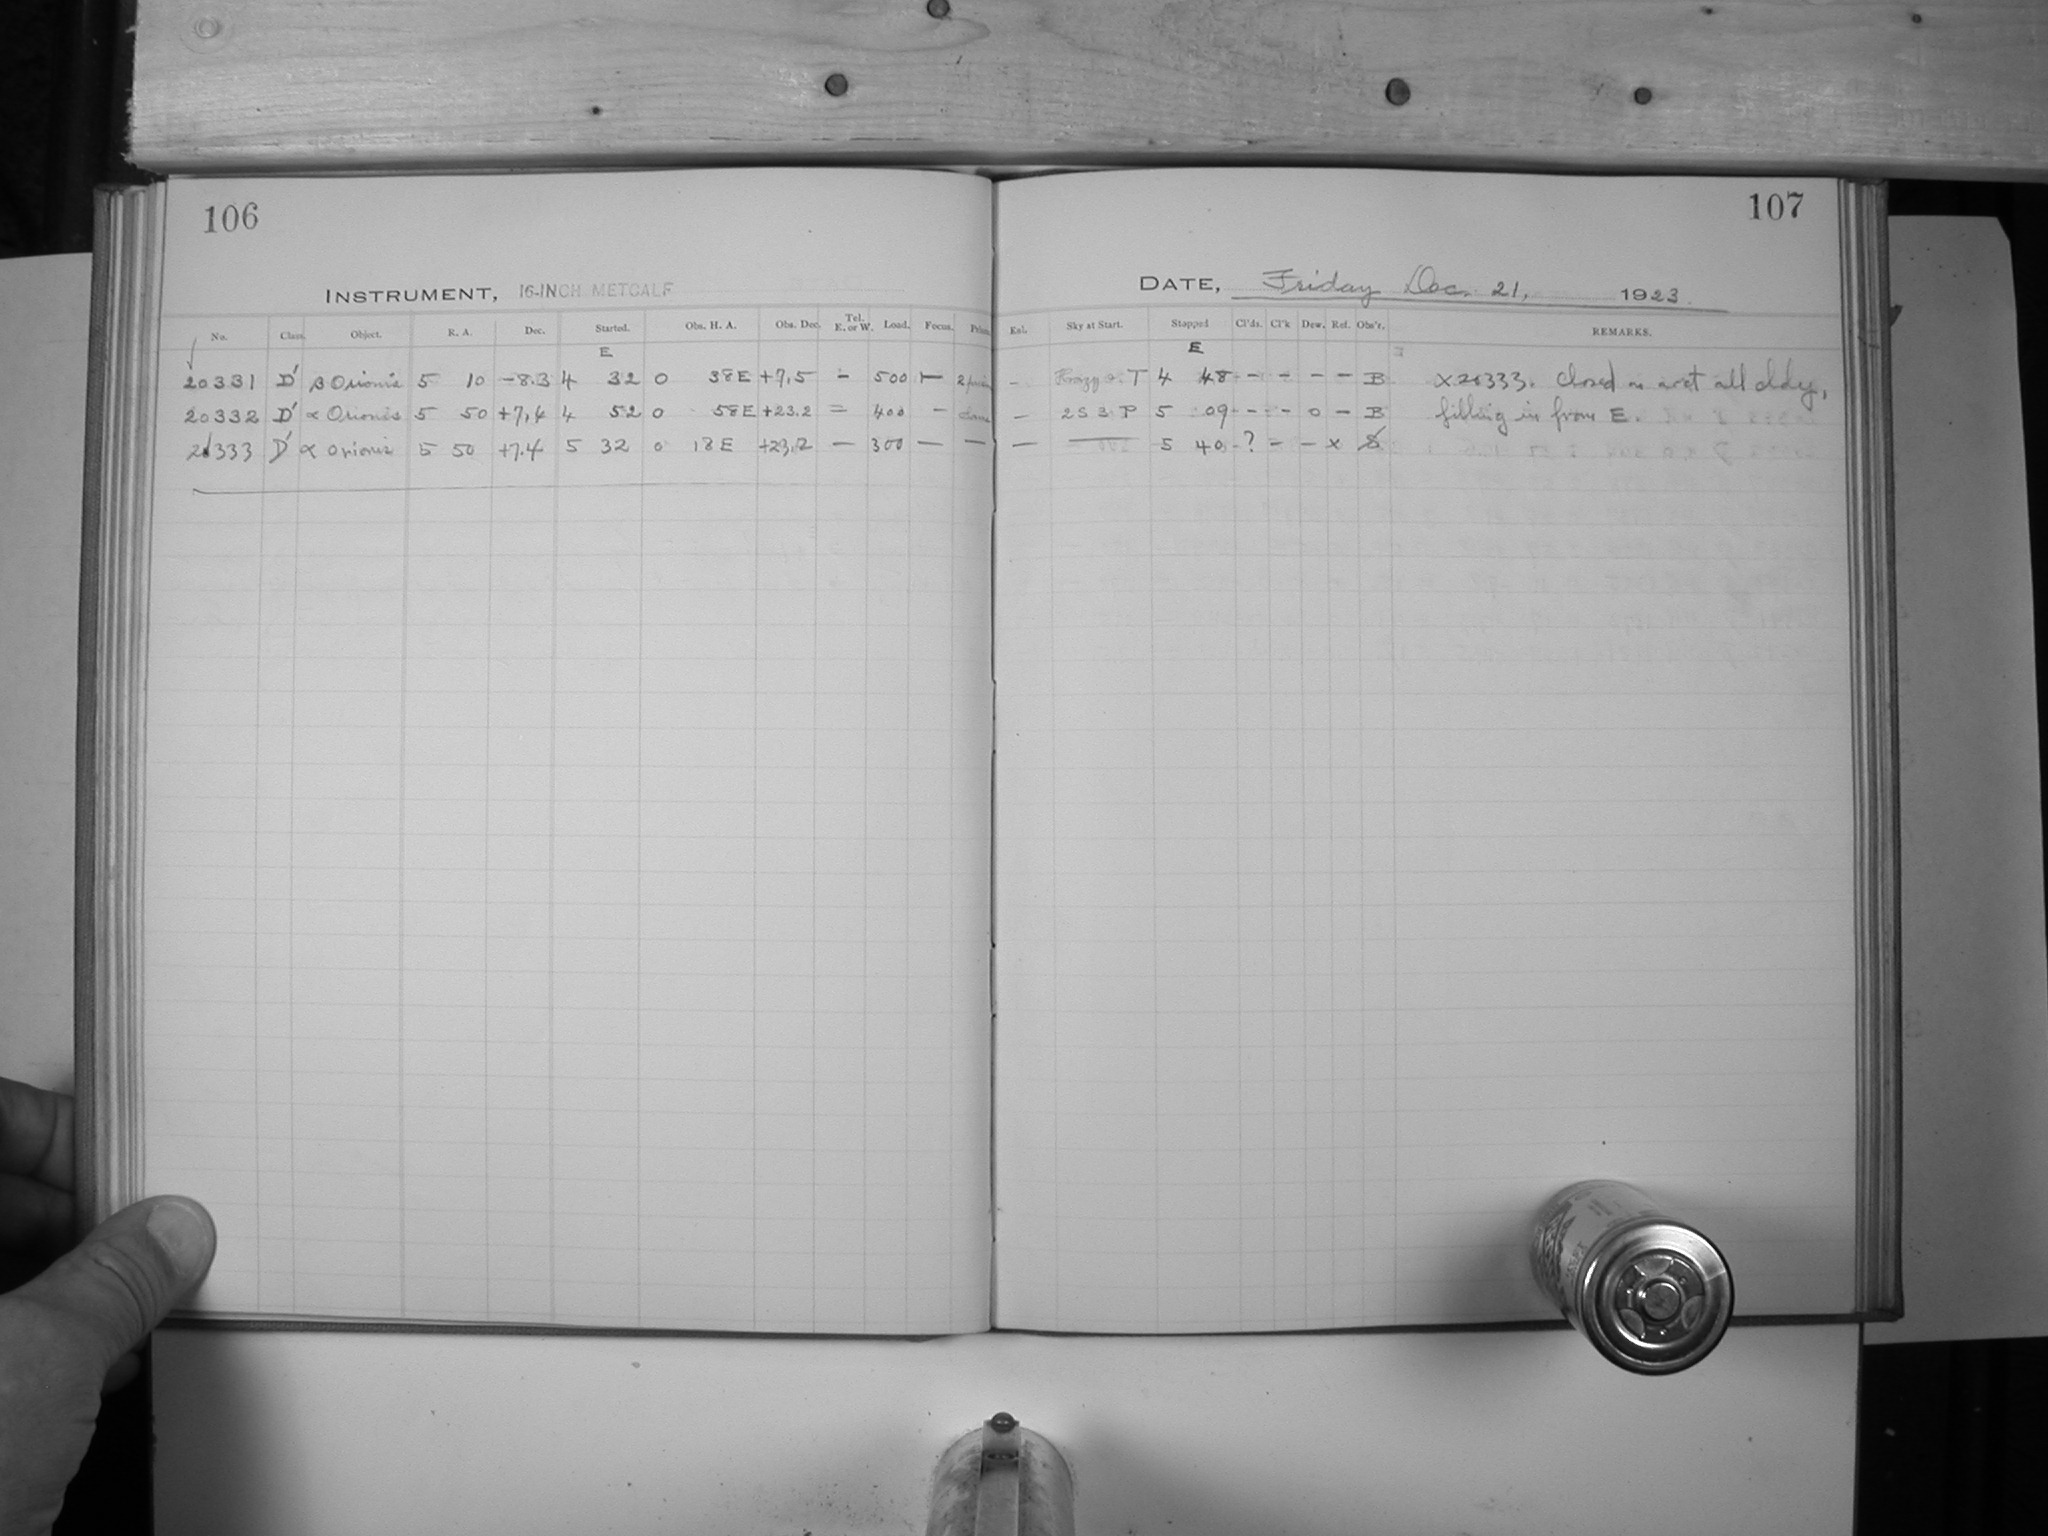 106
INSTRUMENT, 16-INCH METCALF
No. Class. Object. R. A. Dec. Started. Obs. H. A. Obs. Dec. Tel. E. or W. Load. Focus. Prism.
E
20331 D' β Orionis 5 10 -8.3 4 32 0 38E +7.5 - 500 -
20332 D' α Orionis 5 50 +7.4 4 52 0 58E +23.2 = 400 - Same
20333 D' α Orionis 5 50 +7.4 5 32 0 18E +23.2 - 300 - -
107
DATE, Friday Dec. 21, 1923
Sky at Start. Stopped Cl'ds. Cl'k Dew. Ref. Obs'r. REMARKS.
E
- T 4 48 - - - - B X20333. Closed all cldy,
- 2S3P 5 09 - - 0 - B filling in from E.
- — 5 40 - ? = - x